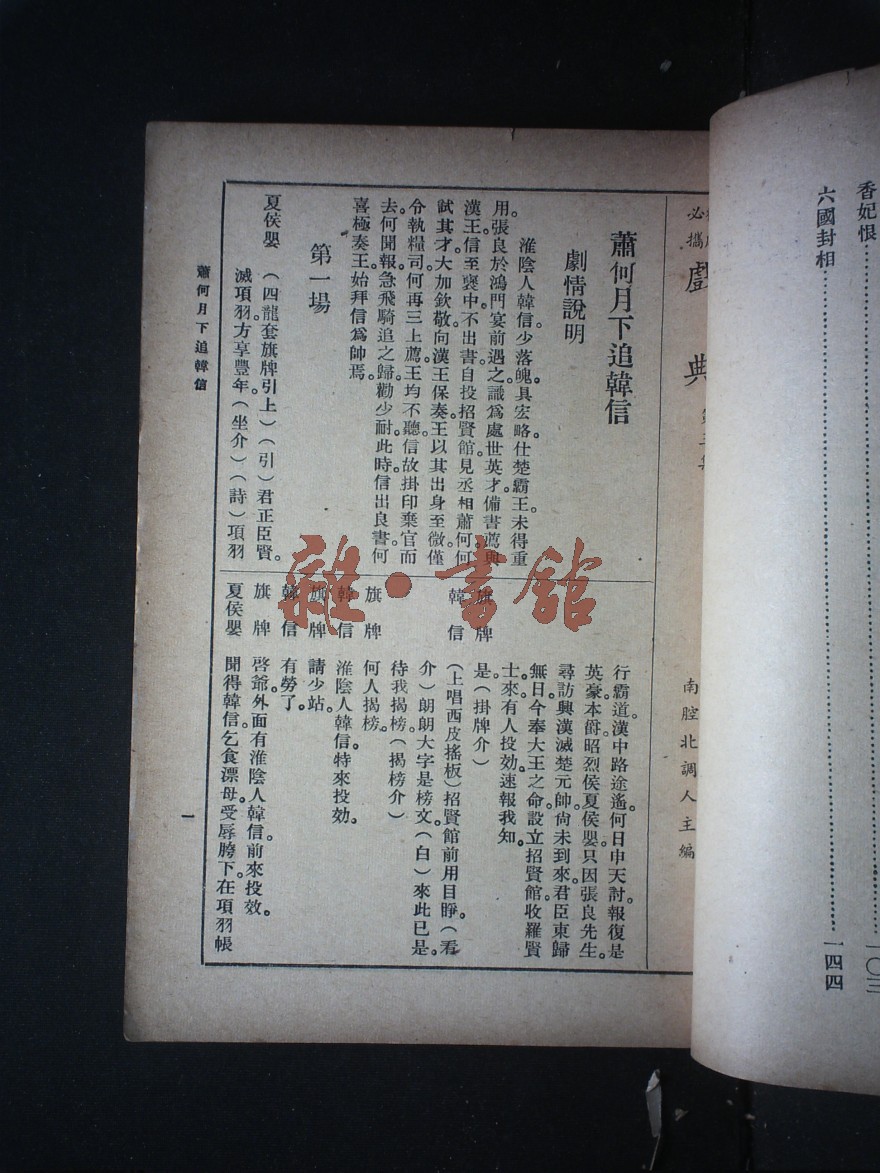 香妃恨
一〇三
六國封相
一四四
必攜
戲典
南腔北調人主編
蕭何月下追韓信
劇情說明
淮陰人韓信。少落魄。具宏略。仕楚霸王。未得重
用。張良於鴻門宴前遇之。識為處世英才。備書薦與
漢王。信至襃中。不出書。自投招賢館。見丞相蕭何。何
試其才。大加欽敬。向漢王保奏。王以其出身至微。僅
令執糧司。何再三上薦。王均不聽。信故掛印棄官而
去。何聞報。急飛騎追之歸。勸少耐。此時信出良書。何
喜極奏王。始拜信為帥焉。
第一場
夏侯嬰
(四龍套旗牌引上)(引)君正臣賢。
滅項羽。方享豐年。(坐介)(詩)項羽
行霸道。漢中路途遙。何日中天討。報復是
英豪。本爵昭烈侯夏侯嬰。只因張良先生。
尋訪興漢滅楚元帥。尙未到來。君臣東歸
無日。今奉大王之命。設立招賢館。收羅賢
士。來。有人投効。速報我知。
旗牌
是。(掛牌介)
韓信
(上唱西皮搖板)招賢館前用目睜。(看
介)朗朗大字是榜文。(白)來此已是。
待我揭榜。(揭榜介)
旗牌
何人揭榜。
韓信
淮陰人韓信。特來投効。
旗牌
請少站。
韓信
有勞了。
旗牌
啓爺。外面有淮陰人韓信。前來投效。
夏侯嬰
聞得韓信。乞食漂母。受辱胯下。在項羽帳
蕭何月下追韓信
一
雜·書館